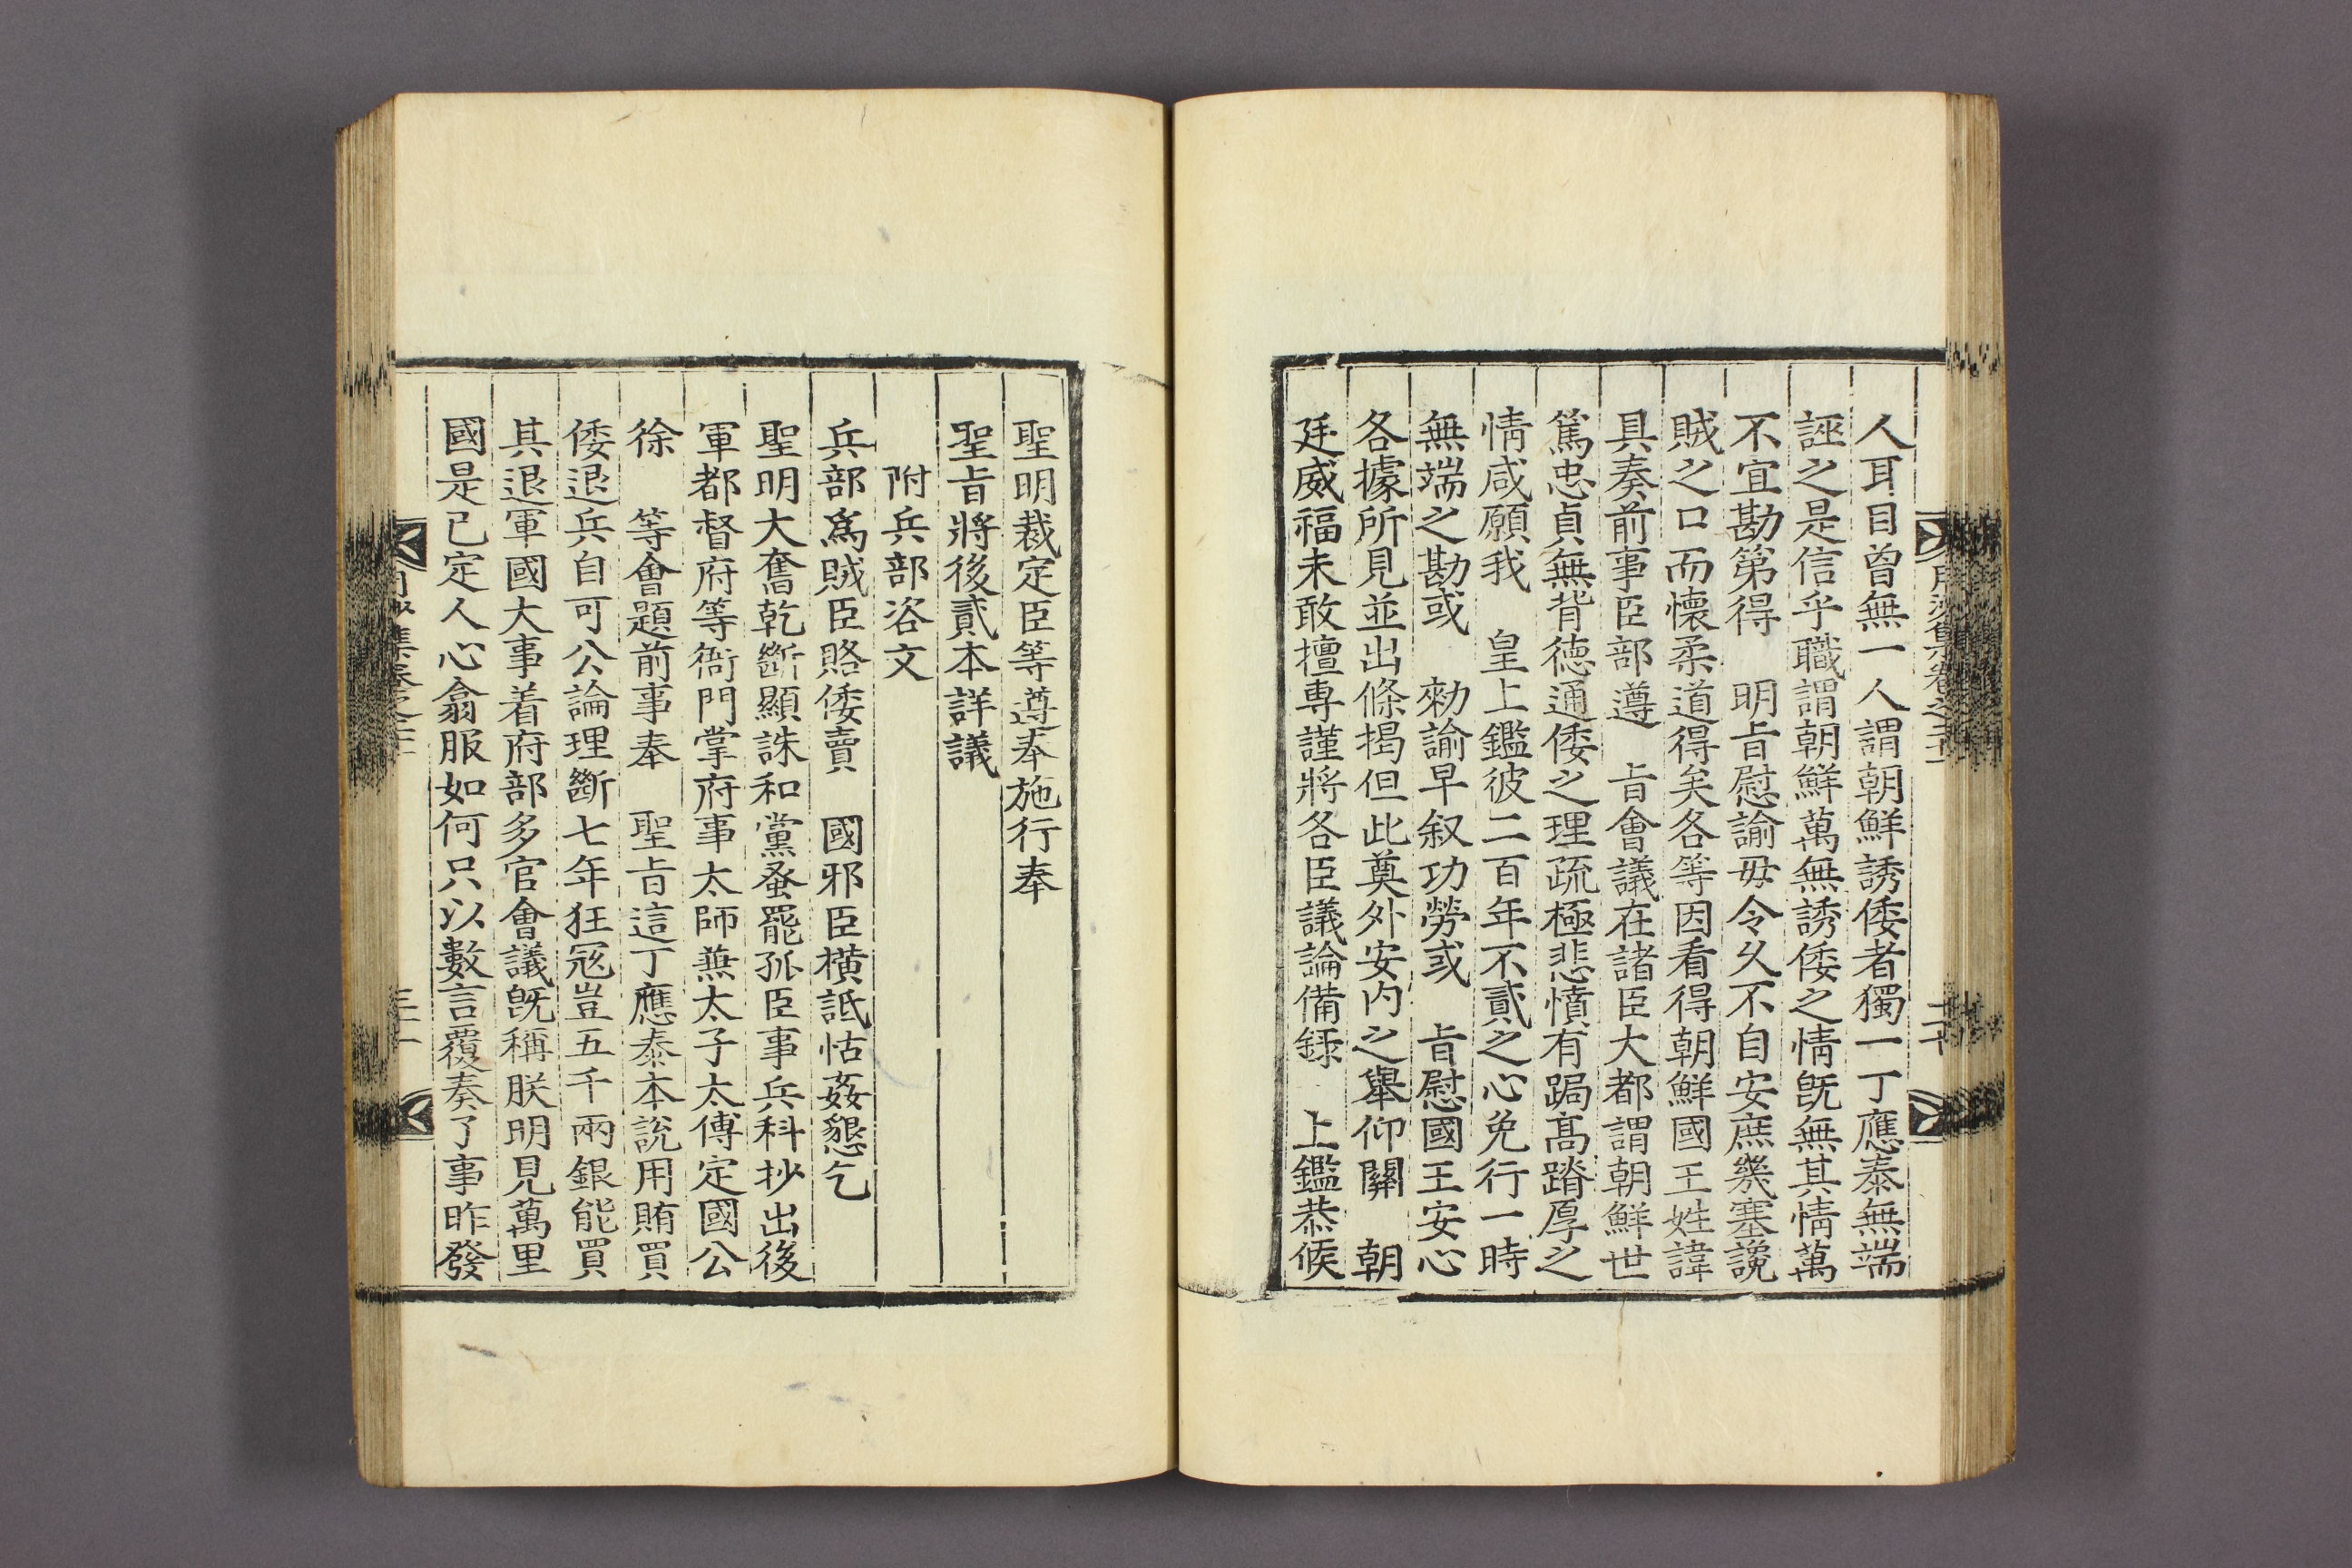 人耳目曾無一人謂朝鮮誘倭者獨一丁應泰無端
誣之是信乎職謂朝鮮萬無誘倭之情旣無其情萬
不宜勘第得　明旨慰諭毋令久不自安庶幾塞讒
賊之口而懷柔道得矣各等因看得朝鮮國王姓諱
具奏前事臣部遵　旨會議在諸臣大都謂朝鮮世
篤忠貞無背德通倭之理疏極悲憤有跼高蹐厚之
情咸願我　皇上鑑彼二百年不貳之心免行一時
無端之勘或　勑諭早叙功勞或　旨慰國王安心
各據所見並出條揭但此奠外安内之舉仰關　朝
廷威福未敢擅專謹將各臣議論備錄　上鑑恭候
聖明裁定臣等遵奉施行奉
聖旨將後貳本詳議
附兵部咨文
兵部爲賊臣賂倭賣　國邪臣橫詆怙姦懇乞
聖明大奮乾斷顯誅和黨蚤罷孤臣事兵科抄出後
軍都督府等衙門掌府事太師兼太子太傅定國公
徐　等會題前事奉　聖旨這丁應泰本說用賄買
倭退兵自可公論理斷七年狂冦豈五千兩銀能買
其退軍國大事着府部多官會議旣稱朕明見萬里
國是已定人心翕服如何只以數言覆奏了事昨發